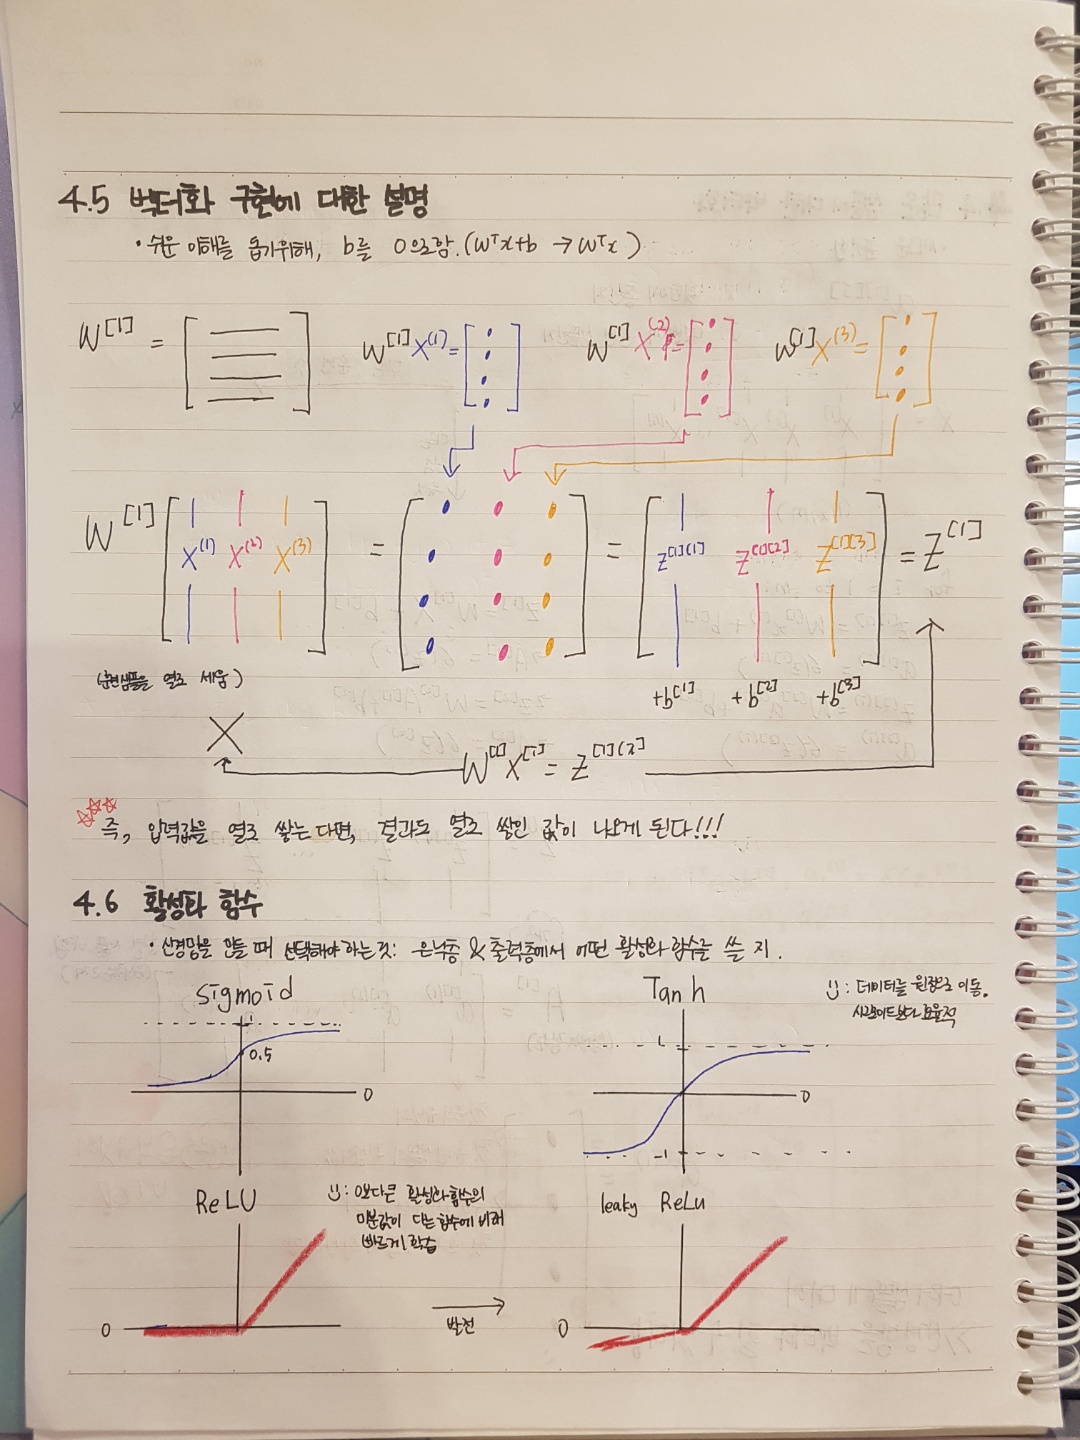 4.5 벡터화 구현에 대한 설명
· 쉬운 이해를 돕기위해, b를 0으로함. (WᵀX+b → WᵀX)
W[1] =
W[1]X(1) =
W[1]X(2) =
W[1]X(3) =
W[1] X(1) X(2) X(3) = = Z[1](1) Z[1][2] Z[1][3] = Z[1]
(훈련샘플을 열로 세움)
+b[1] +b[2] +b[3]
X
W[1]X[1] = Z[1](2)
즉, 입력값을 열로 쌓는다면, 결과도 열로 쌓인 값이 나오게 된다!!!
4.6 활성화 함수
· 신경망을 만들 때 선택해야 하는것: 은닉층 & 출력층에서 어떤 활성화 함수를 쓸 지.
sigmoid
1
0.5
0
Tanh
: 데이터를 원점으로 이동.
시그모이드보다 효율적
1
0
-1
ReLU
: 0보다큰 활성화함수의
미분값이 다른함수에 비해
빠르게 학습
0
발전
leaky ReLu
0